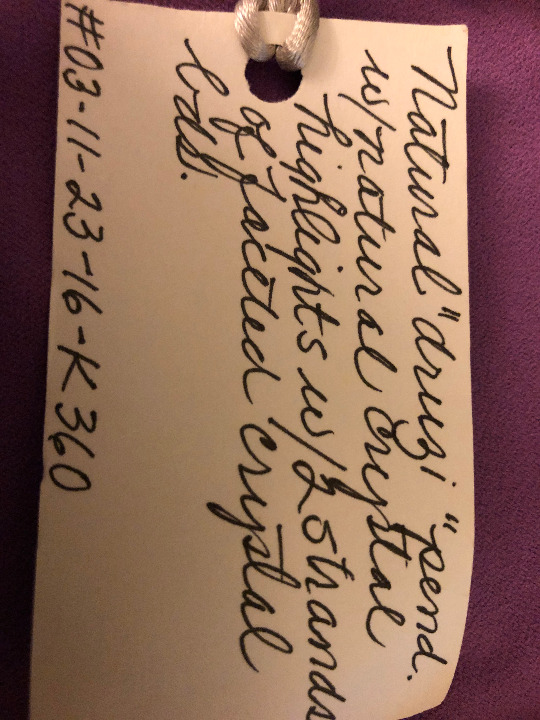 Natural "druzi" pend.
w/natural Crystal
highlights w/2 strands
of faceted crystal
bds.
#03-11-23-16-K360